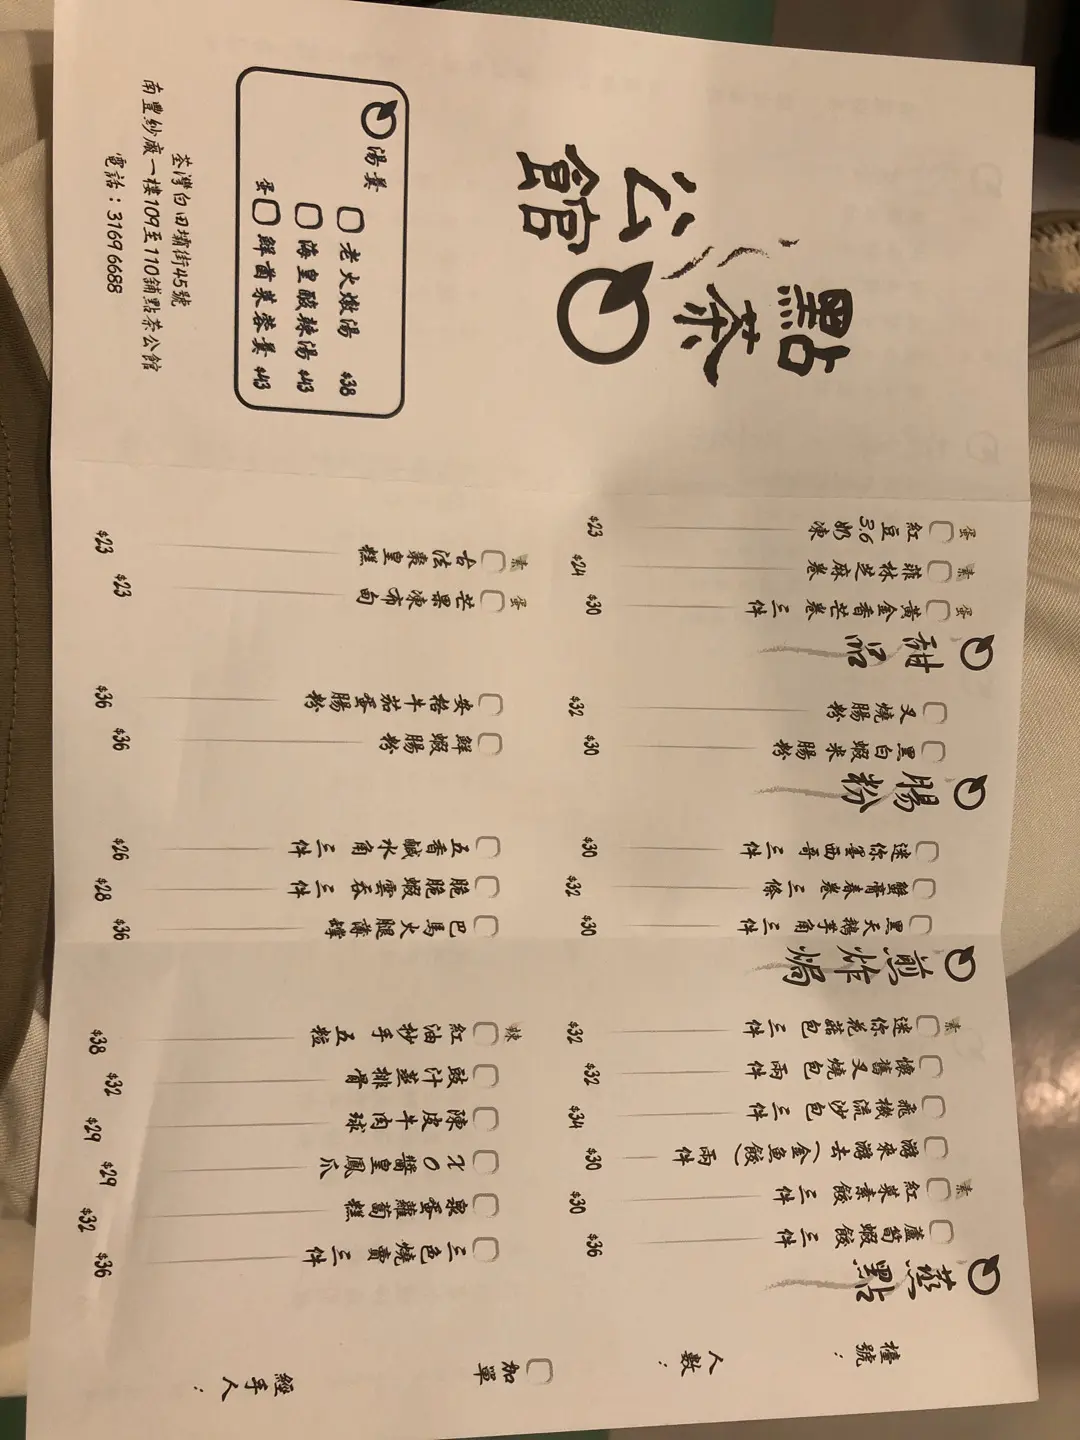 點茶
公館
湯羹
老火燉湯 $38
海皇酸辣湯 $43
蛋 鮮菌菜蓉羹 $43
荃灣白田壩街45號
南豐紗廠一樓109至110舖點茶公館
電話：3169 6688
檯號：
人數：
加單
經手人：
蒸點
蘆筍蝦餃 三件 $36
素 紅菜素餃 三件 $30
游來游去(金魚餃) 兩件 $30
飛機流沙包 三件 $34
懷舊叉燒包 兩件 $32
素 迷你花菇包 三件 $32
三色燒賣 三件 $36
泉蛋蘿蔔糕 $32
XO醬皇鳳爪 $29
陳皮牛肉球 $29
豉汁蒸排骨 $32
辣 紅油抄手 五粒 $38
煎炸焗
黑天鵝芋角 三件 $30
蟹膏春卷 三條 $32
迷你墨西哥 三件 $30
巴馬火腿薄撐 $36
脆脆蝦雲吞 三件 $28
五香鹹水角 三件 $26
腸粉
黑白蝦米腸粉 $30
叉燒腸粉 $32
鮮蝦腸粉 $36
安格牛茄蛋腸粉 $36
甜品
蛋 黃金香芒卷 三件 $30
素 菲林芝麻卷 $24
蛋 紅豆3.6奶凍 $23
蛋 芒果凍布甸 $23
素 古法棗皇糕 $23